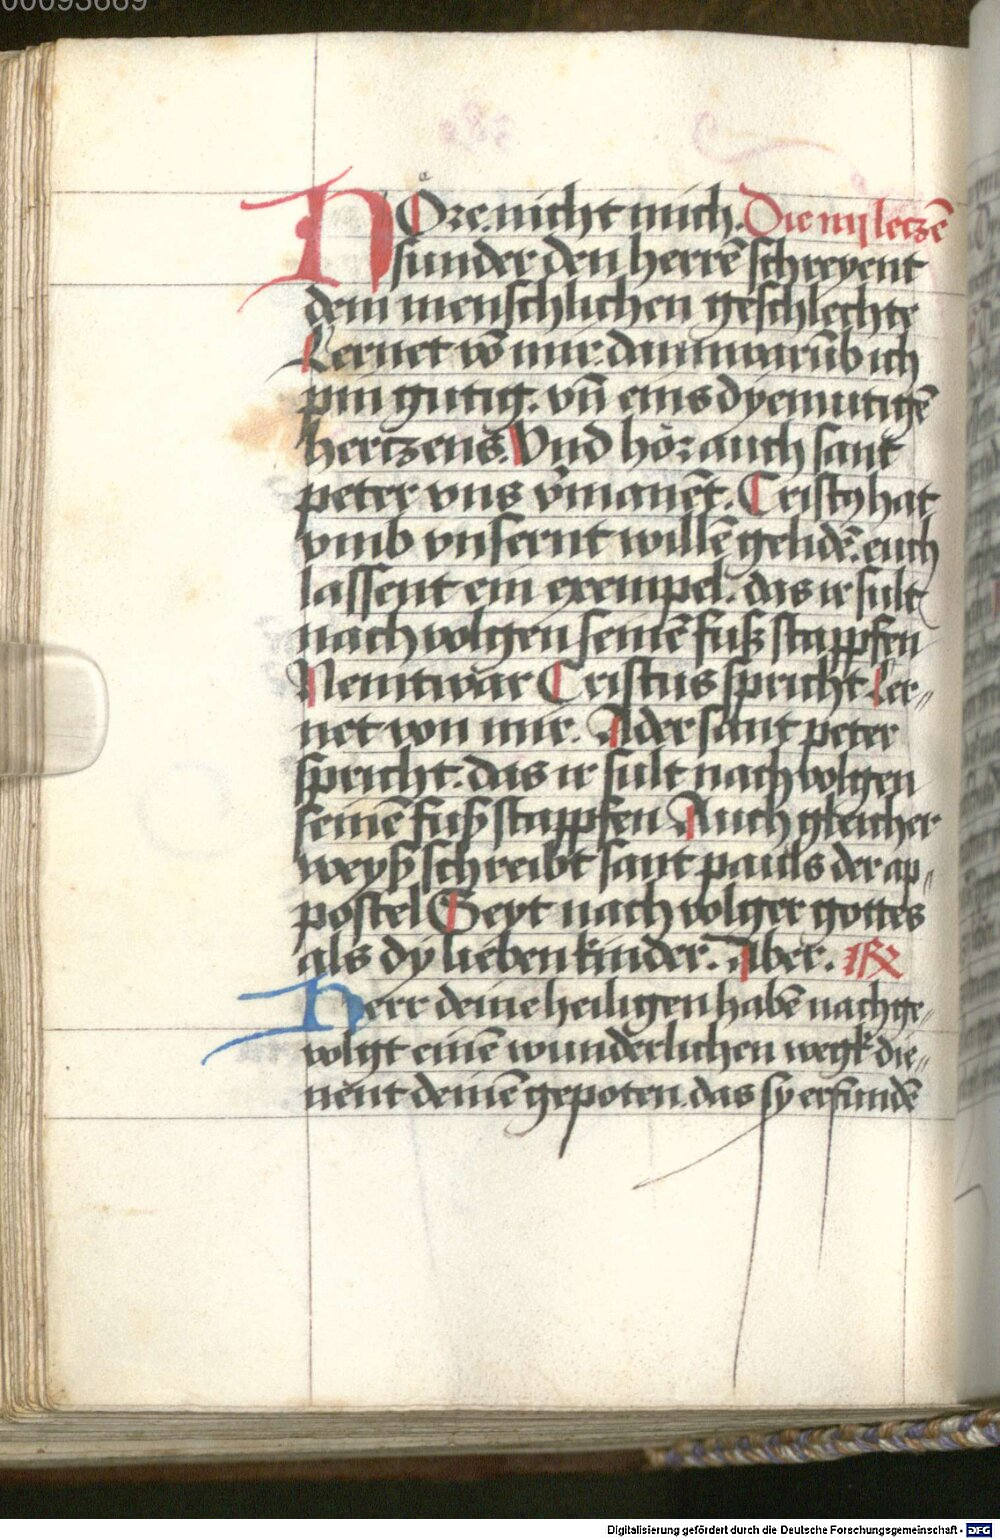 00093669
HOͤre nicht mich. Die iiij letzē
sunder den herrē schreyent
dem menschlichen geschlechte
Lernet vō mir dann warūb ich
pin gutig. vn̄ eins dyemutigē
hertzens. Vnd hör auch sant
peter vns v̄manēt. Cristꝰ hat
vmb vnsernt willē gelidē. euch
lassent ein exempel. das ir sult
nach volgen seinē fuß stappfen
Nemt war Cristus spricht. Ler⸗
net von mir. Ader sant peter
spricht. das ir sult nach volgen
seinē fuß stappfen Auch gleicher
weyß schreibt sant pauls der ap⸗
postel Seyt nach volger gottes
als dy lieben kinder. Aber. R̸
Herr deine heiligen habē nachge⸗
volgt einē wunderlichen wegk die⸗
nent deinē gepoten. das sy erfundē
Digitalisierung gefördert durch die Deutsche Forschungsgemeinschaft - DFG